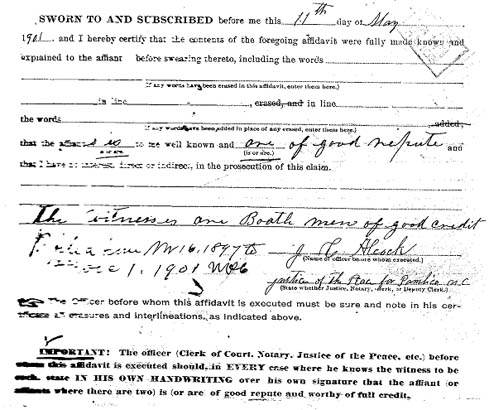 SWORN TO AND SUBSCRIBED before me this 11th day of May
1901 and I hereby certify that the contents of the foregoing affidavit were fully made known and
explained to the affiant before swearing thereto, including the words
(If any words have been erased in this affidavit, enter them here.)
in line , erased, and in line
the words added,
(If any words have been added in place of any erased, enter them here.)
that the affiant is to me well known and are of good repute and
is or are (is or are.)
that I have no interest, direct or indirect, in the prosecution of this claim.
The witnesses are Boath men of good credit
16, 1897 to J. C. Alcock
(Name of officer before whom executed.)
1, 1901 Justice of the Peace for Pamlico N.C
(State whether Justice, Notary, clerk, or Deputy Clerk.)
The Officer before whom this affidavit is executed must be sure and note in his cer-
tificate all erasures and interlineations, as indicated above.
IMPORTANT! The officer (Clerk of Court, Notary, Justice of the Peace, etc.) before
whom this affidavit is executed should, in EVERY case where he knows the witness to be
such, state IN HIS OWN HANDWRITING over his own signature that the affiant (or
affiants where there are two) is (or are) of good repute and worthy of full credit.